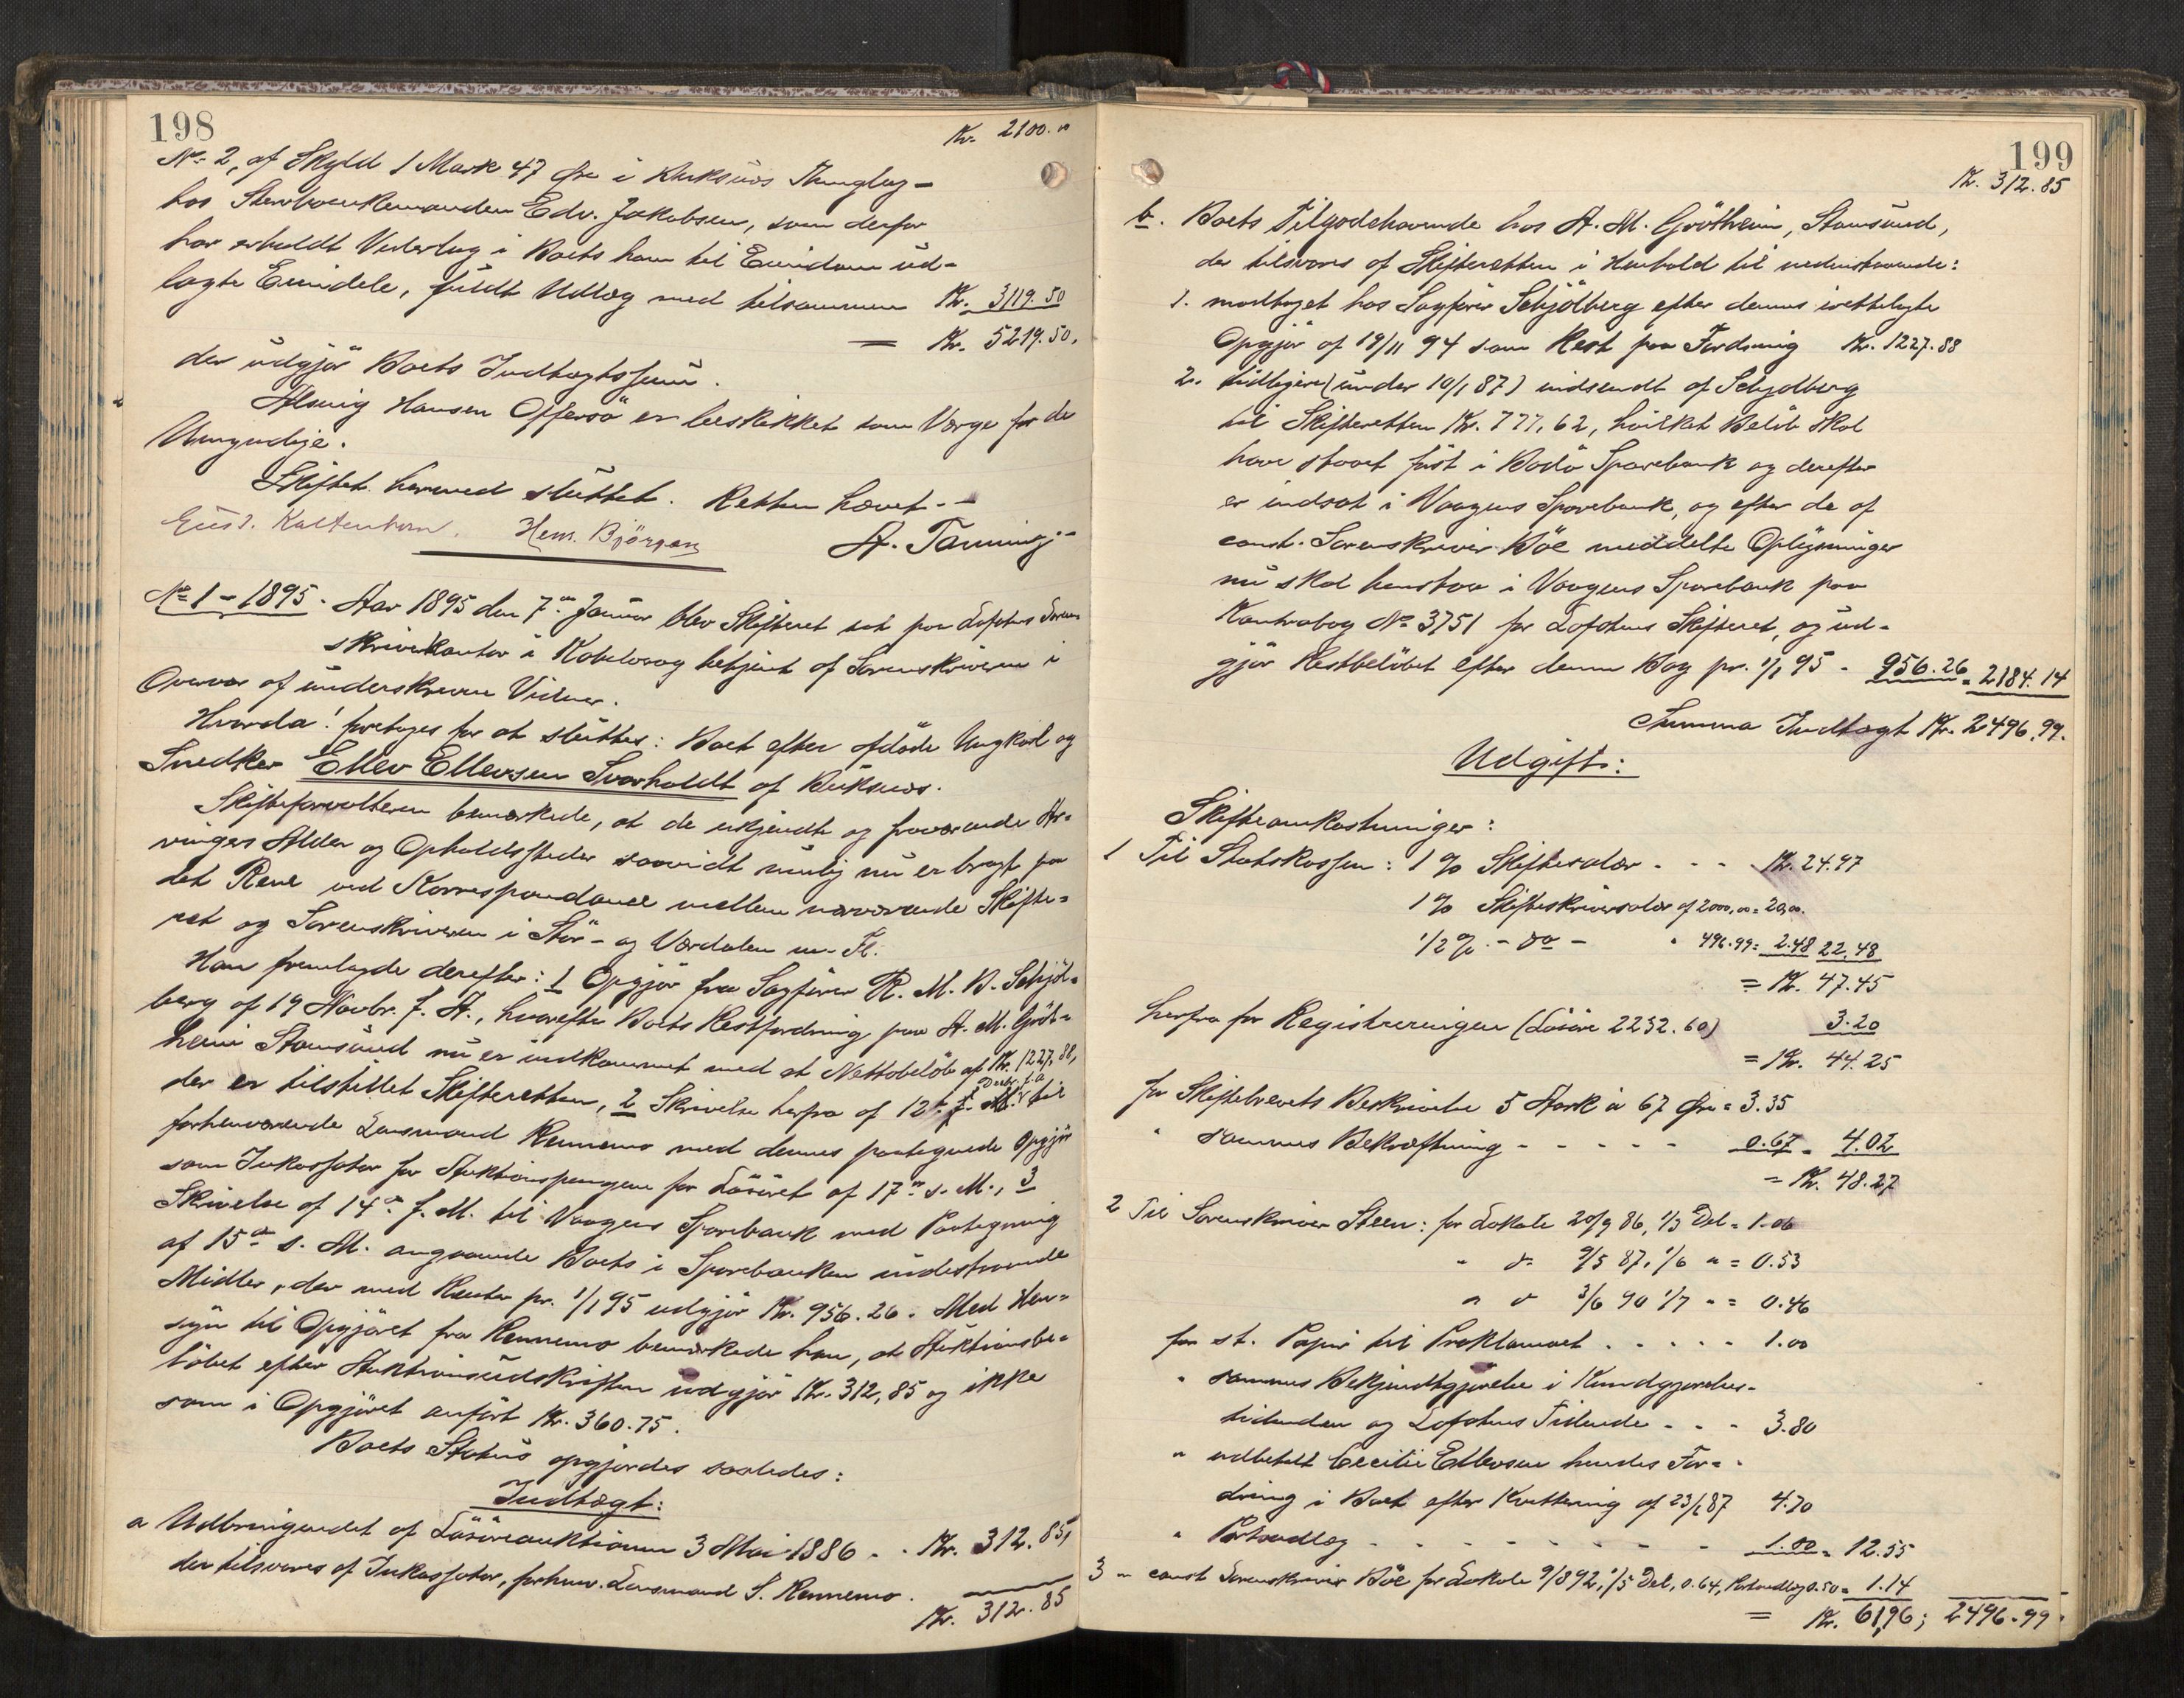 198
Kr. 2100.00
No 2, af Skyld 1 Mark 47 Øre i Buksnes Thinglag -
hos Stervboenkemanden Edv. Jakobsen, som derfor
har erholdt Vederlag i Boets ham til Eiendom ud-
lagte Eiendele, fuldt Udlæg med tilsammen Kr. 3119.50
= Kr. 5219.50.
der udgjør Boets Indtægtssum.
Hansen Offersø er beskikket som Værge for de
Umyndige.
Skiftet hermed sluttet. Retten hævet. -
Gust. Kaltenborn. Hem. Bjørgan A. Tanning. -
No 1 - 1895. Aar 1895 den 7de Januar blev Skifteret sat paa Lofotens Soren-
skriverkontor i Kabelvaag betjent af Sorenskriveren i
Overvær af underskrevne Vidner.
Hvorda! foretages for at sluttes: Boet efter afdøde Ungkarl og
Snedker Ellev Ellevsen Svarholdt af Buksnes.
Skifteforvalteren bemærkede, at de ukjendte og fraværende Ar-
vingers Alder og Opholdssteder saavidt mulig nu er bragt paa
det Rene ved Korrespondance mellem nærværende Skifte-
ret og Sorenskriveren i Stør- og Værdalen m. Fl.
Han fremlagde derefter: 1 Opgjør fra Sagfører R. M. B. Schjøl-
berg af 19 Novbr. f. A., hvorefter Boets Restfordring paa A. M. Grøt-
heim Stamsund nu er indkommet med et Nettobeløb af Kr. 1227,88,
der er tilstillet Skifteretten, 2 Skrivelse herfra af 12te Decbr. f. A. til
forhenværende Lensmand Rennemo med dennes paategnede Opgjør
som Inkassator for Auktionspengene for Løsøret af 17de s. M., 3
Skrivelse af 14de f. M. til Vaagens Sparebank med Paategning
af 15de s. M. angaaende Boets i Sparebanken indestaaende
Midler, der med Renter pr. 1/1 95 udgjør Kr. 956.26. Med Hen-
syn til Opgjøret fra Rennemo bemærkede han, at Auktionsbe-
løbet efter Auktionsudskriften udgjør Kr. 312,85 og ikke
som i Opgjøret anført Kr. 360.75.
Boets Status opgjordes saaledes:
Indtægt:
a Udbringendet af Løsøreauktionen 3 Mai 1886 - - Kr. 312.85,
der tilsvares af Inkassator, forhenv. Lensmand S. Rennemo.
Kr. 312.85
199
Kr. 312.85
b. Boets Tilgodehavende hos A. M. Grøtheim, Stamsund,
der tilsvares af Skifteretten i Henhold til nedenstaaende:
1. modtaget hos Sagfører Schjølberg efter dennes irettelagte
Opgjør af 19/11 94 som Rest paa Fordring Kr. 1227.88
2. tidligere (under 10/1 87) indsendt af Schjølberg
til Skifteretten Kr. 777,62, hvilket Beløb skal
have staaet først i Bodø Sparebank og derefter
er indsat i Vaagens Sparebank, og efter de af
const. Sorenskriver Bøe meddelte Oplysninger
nu skal henstaa i Vaagens Sparebank paa
Kontrabog No 3751 for Lofotens Skifteret, og ud-
gjør Restbeløbet efter denne Bog pr. 1/1 95 - 956.26 = 2184.14
Summa Indtægt Kr. 2496.99.
Udgift:
Skifteomkostninger:
1 Til Statskassen: 1 % Skiftesalær - - - Kr. 24.97
1 % Skifteskriversalær af 2000,00 = 20,00.
1/2 % - do - " 496.99 = 2.48 22.48
= Kr. 47.45
herfra for Registreringen (Løsøre 2232.60) 3.20
= Kr. 44.25
for Skiftebrevets Beskrivelse 5 Ark à 67 Øre = 3.35
" sammes Bekræftning - - - - - 0.67 = 4.02
= Kr. 48.27
2 Til Sorenskriver Steen: for Lokale 20/9 86, 1/3 Del = 1.06
" do 9/5 87, 1/6 " = 0.53
" do 3/6 90 1/7 " = 0.46
for st. Papir til Proklamaet . . . . . 1.00
" sammes Bekjendtgjørelse i Kundgjørelses-
tidenden og Lofotens Tidende - - - 3.80
" udbetalt Cecilie Ellevsen hendes For-
dring i Boet efter Kvittering af 23/1 87 4.70
" Portoudlæg - - - - - - - - 1.00 = 12.55
3 " const Sorenskriver Bøe for Lokale 9/8 92, 1/5 Del, 0.64, Portoudlæg 0.50 = 1.14
= Kr. 61,96; 2496.99.